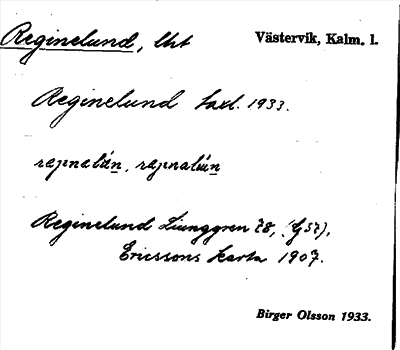 Reginelund, lht Västervik, Kalm. l.
Reginelund Saxl. 1933.
Reginelund Ljunggren 78, (G 57),
Ericssons karta 1907.
Birger Olsson 1933.